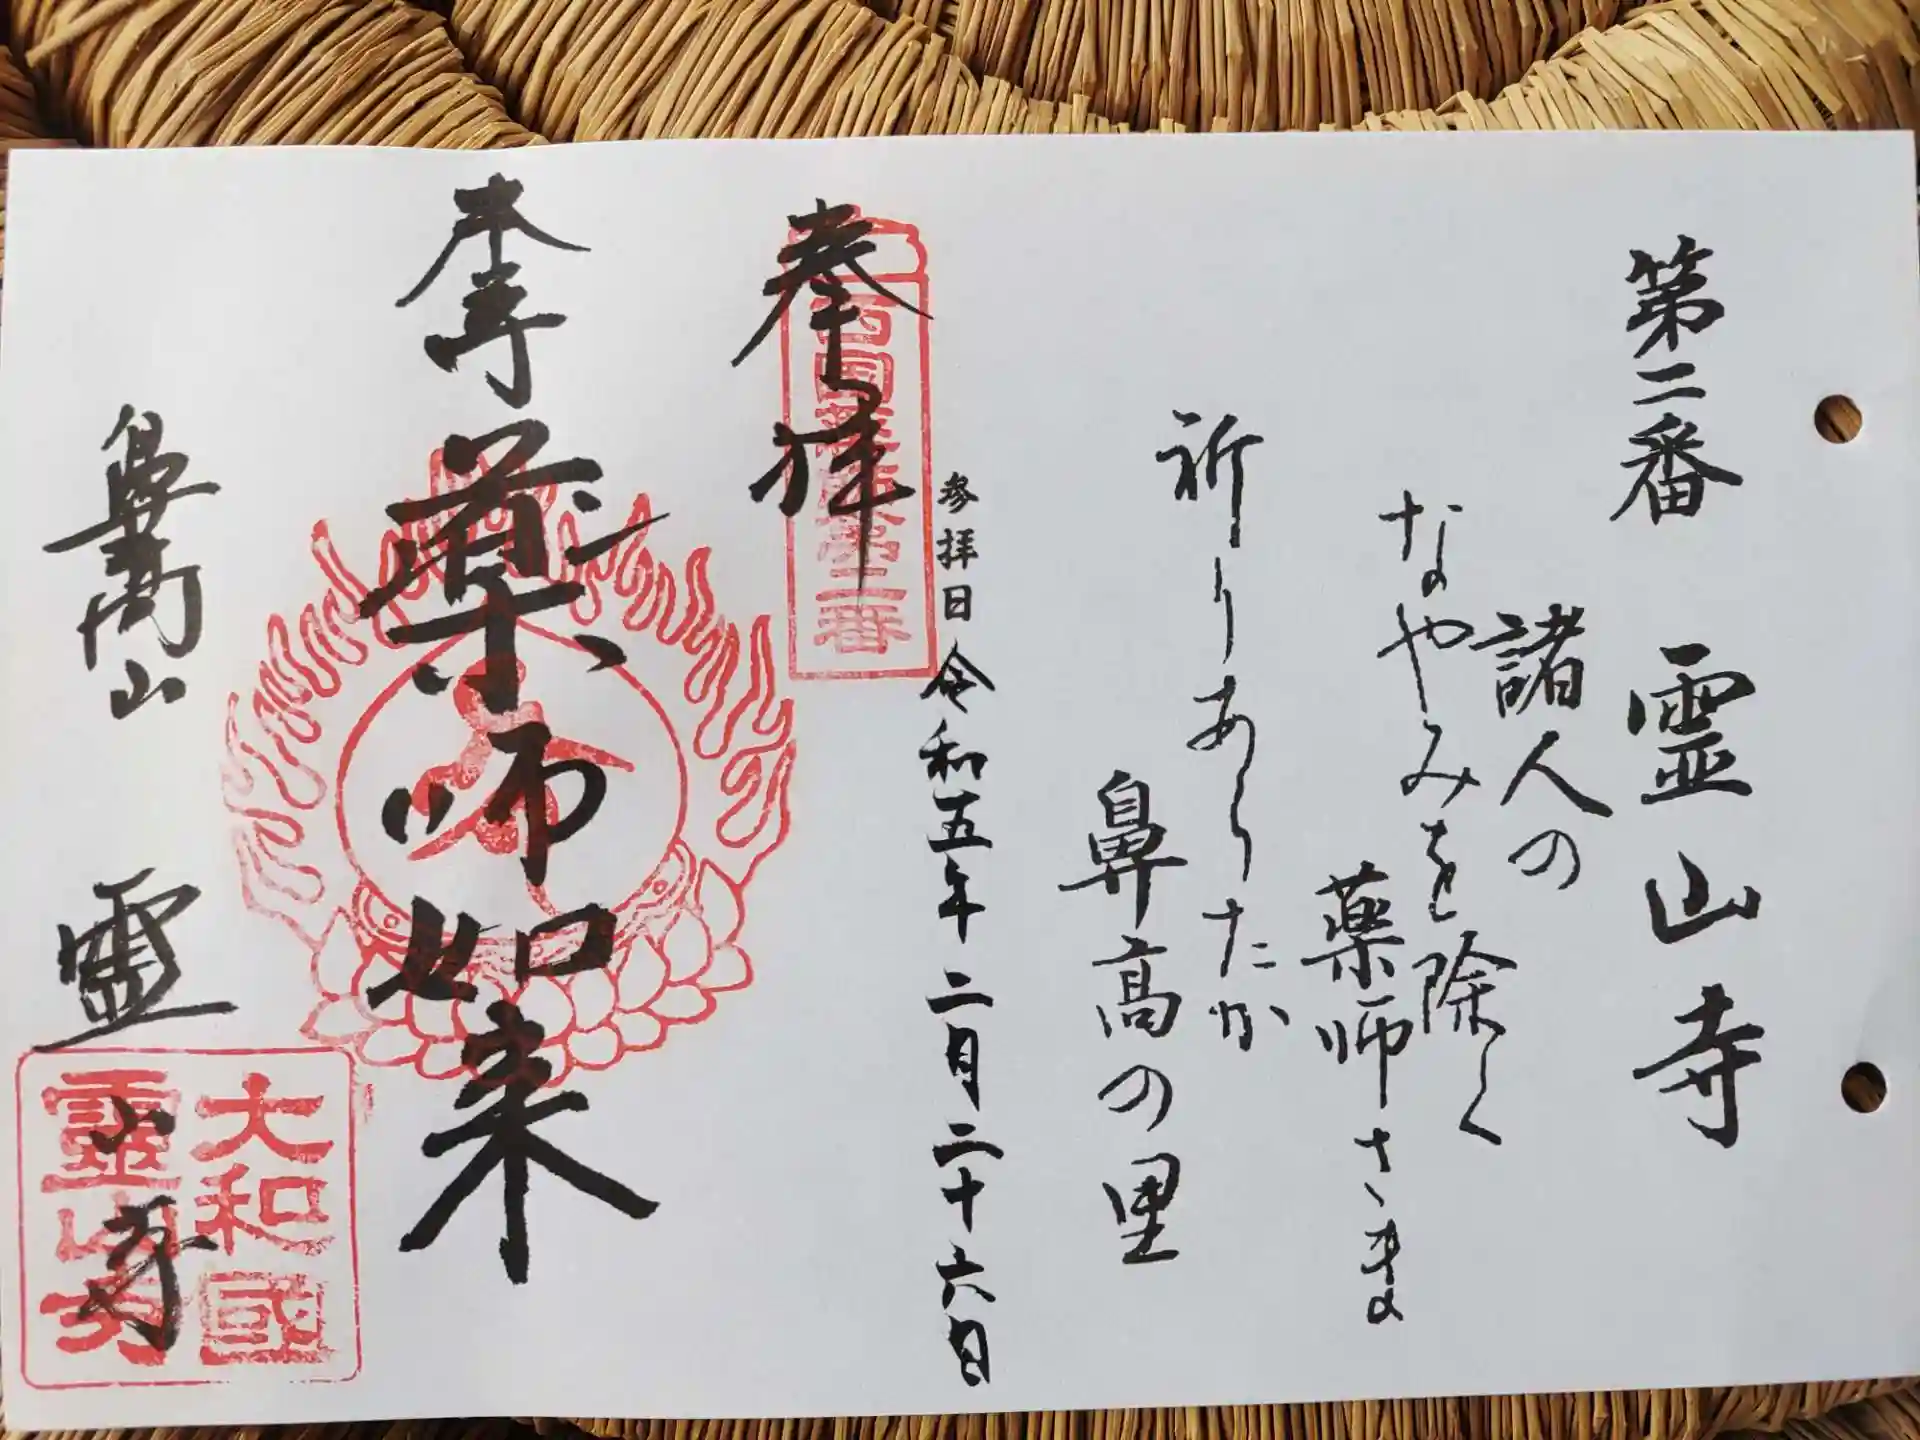 第二番 霊山寺
諸人の
なやみを除く
薬師さま
祈りあらたか
鼻高の里
参拝日 令和五年二月二十六日
奉拝
西国薬師第二番
本尊 薬師如来
鼻高山 霊山寺
大和國
靈山寺